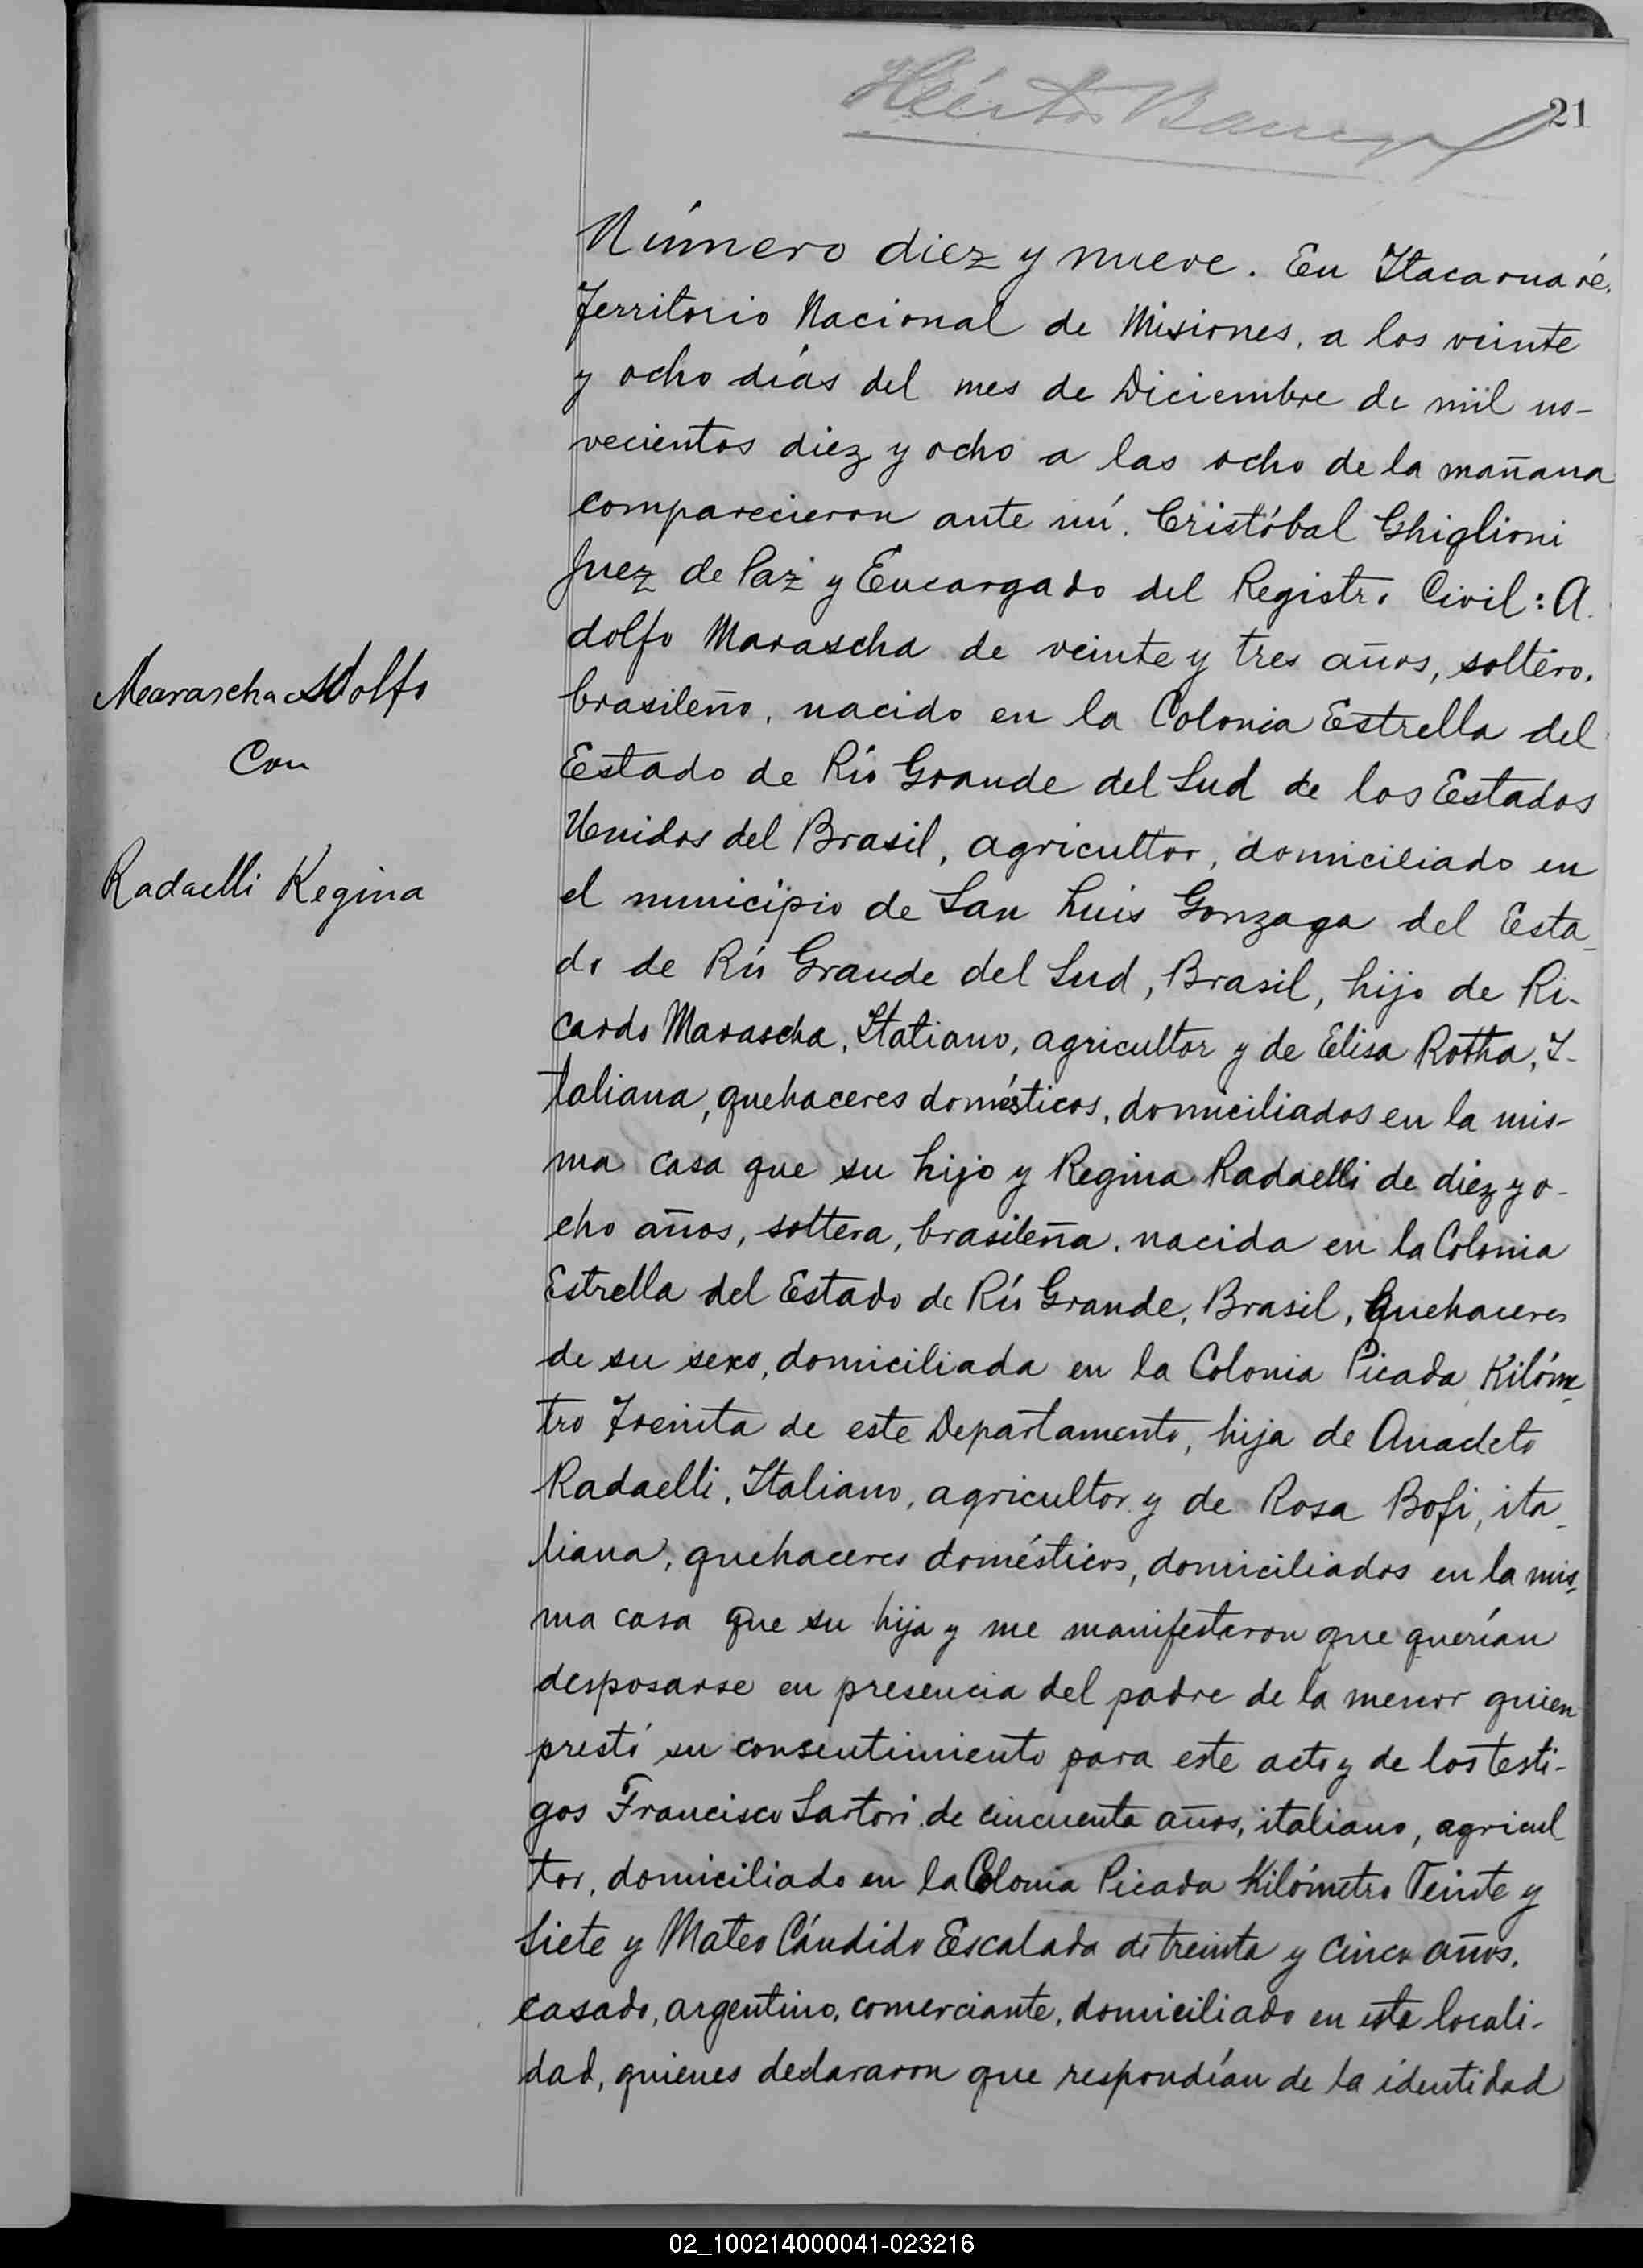 Héctor
21
Número diez y nueve. En Itacaruaré,
Territorio Nacional de Misiones, a los veinte
y ocho días del mes de Diciembre de mil no-
vecientos diez y ocho a las ocho de la mañana
comparecieron ante mí, Cristóbal Ghiglioni
Juez de Paz y Encargado del Registro Civil: A.
dolfo Marascha de veinte y tres años, soltero,
brasileño, nacido en la Colonia Estrella del
Estado de Río Grande del Sud de los Estados
Unidos del Brasil, agricultor, domiciliado en
el municipio de San Luis Gonzaga del Esta_
do de Río Grande del Sud, Brasil, hijo de Ri-
cardo Marascha, Italiano, agricultor y de Elisa Rotha, I-
taliana, quehaceres domésticos, domiciliados en la mis-
ma casa que su hijo y Regina Radaelli de diez y o-
cho años, soltera, brasileña, nacida en la Colonia
Estrella del Estado de Río Grande, Brasil, quehaceres
de su sexo, domiciliada en la Colonia Picada Kilóme_
tro Treinta de este Departamento, hija de Anacleto
Radaelli, Italiano, agricultor y de Rosa Bofi, ita_
liana, quehaceres domésticos, domiciliados en la mis_
ma casa que su hija y me manifestaron que querían
desposarse en presencia del padre de la menor quien
prestó su consentimiento para este acto y de los testi-
gos Francisco Sartori de cincuenta años, italiano, agricul_
tor, domiciliado en la Colonia Picada Kilómetro Veinte y
Siete y Mateo Cándido Escalada de treinta y cinco años,
casado, argentino, comerciante, domiciliado en esta locali-
dad, quienes declararon que respondían de la identidad
Marascha Adolfo
Con
Radaelli Regina
02_100214000041-023216